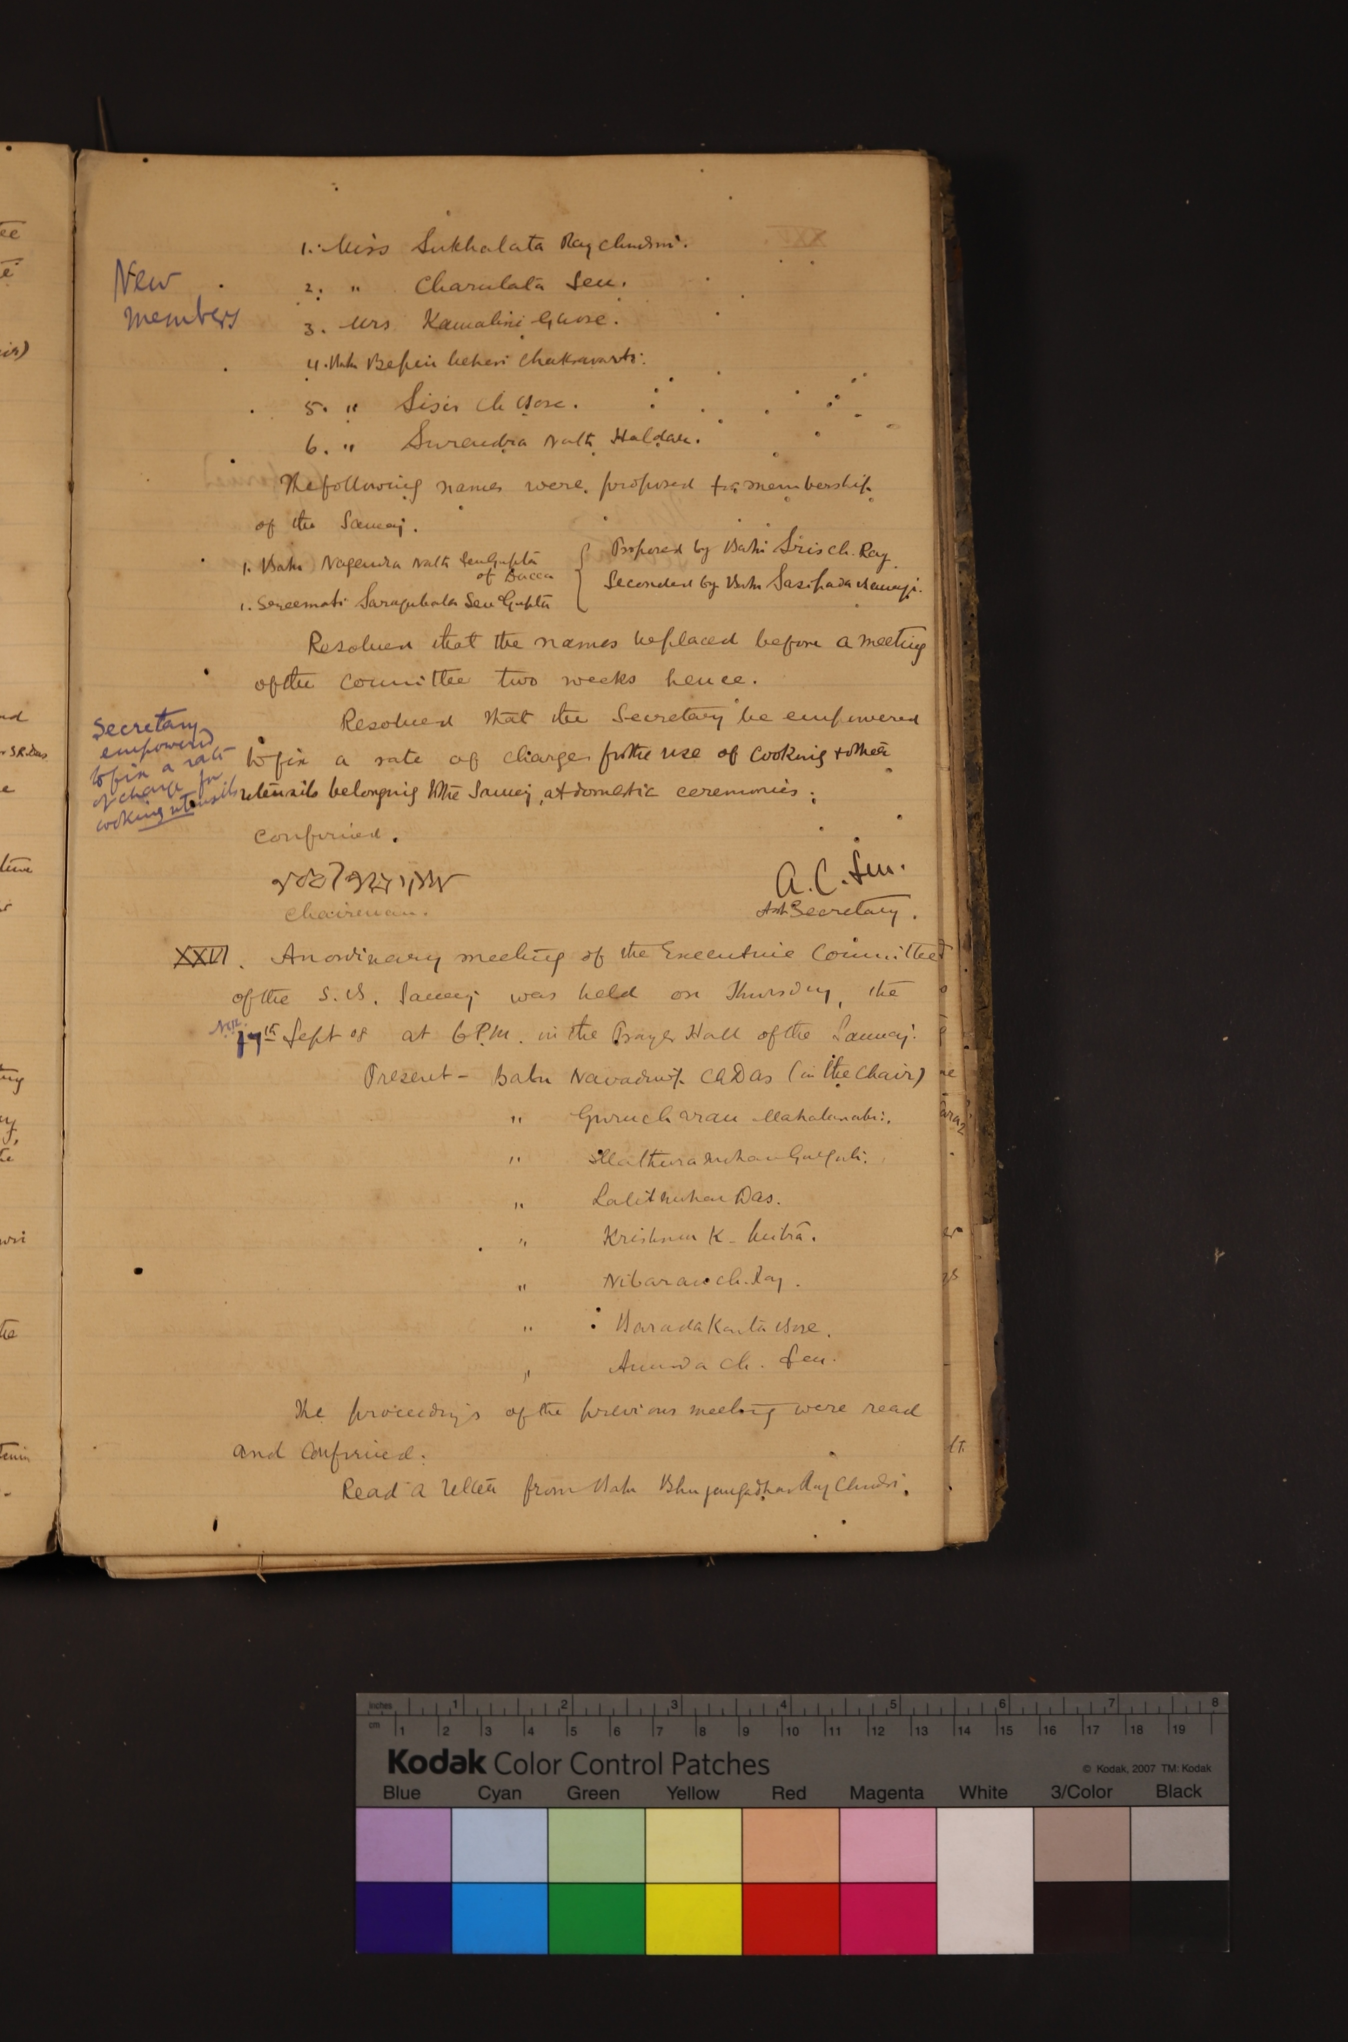 New
members
1. Miss Sukhalata Ray Chudhri.
2. " Charulata Sen.
3. Mrs Kamalini Ghose.
4. Babu Bepin behari Chakravarti.
5. " Sisir Ch Bose.
6. " Surendra Nath Haldar.
The following names were proposed for membership
of the Samaj.
1. Babu Nagendra Nath Sen Gupta
of Dacca
1. Sreemati Sarajubala Sen Gupta
Proposed by Babu Sris ch. Ray
Seconded by Babu Sasipada Banerji.
Resolved that the names be placed before a meeting
of the committee two weeks hence.
Secretary
empowered
to fix a rate
of charge for
cooking utensils
Resolved that the Secretary be empowered
to fix a rate of charge for the use of cooking & other
utensils belonging to the Samaj, at domestic ceremonies.
Confirmed.
Chairman.
A. C. Sen.
Asst Secretary.
XXVI. An ordinary meeting of the Executive Committee
of the S. B. Samaj was held on Thursday, the
17th Sept 08 at 6 P.M. in the Prayer Hall of the Samaj.
Present - Babu Navadwip Ch Das (in the Chair)
" Gurucharan Mahalanabis.
" Mathura Mohan Ganguli.
" Lalit Mohan Das.
" Krishna K. Mitra.
" Nibaran ch. Ray.
" Barada Kanta Bose.
" Annada Ch. Sen.
The proceedings of the previous meeting were read
and confirmed.
Read a letter from Babu Bhujangadhar Ray Chudhri.
Kodak Color Control Patches
© Kodak, 2007 TM: Kodak
Blue Cyan Green Yellow Red Magenta White 3/Color Black